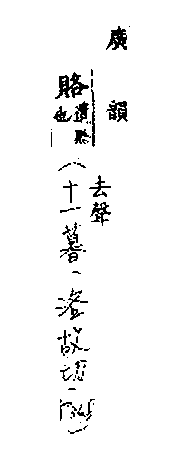 廣韻
賂遺賂也
去聲
(十一暮、洛故切)